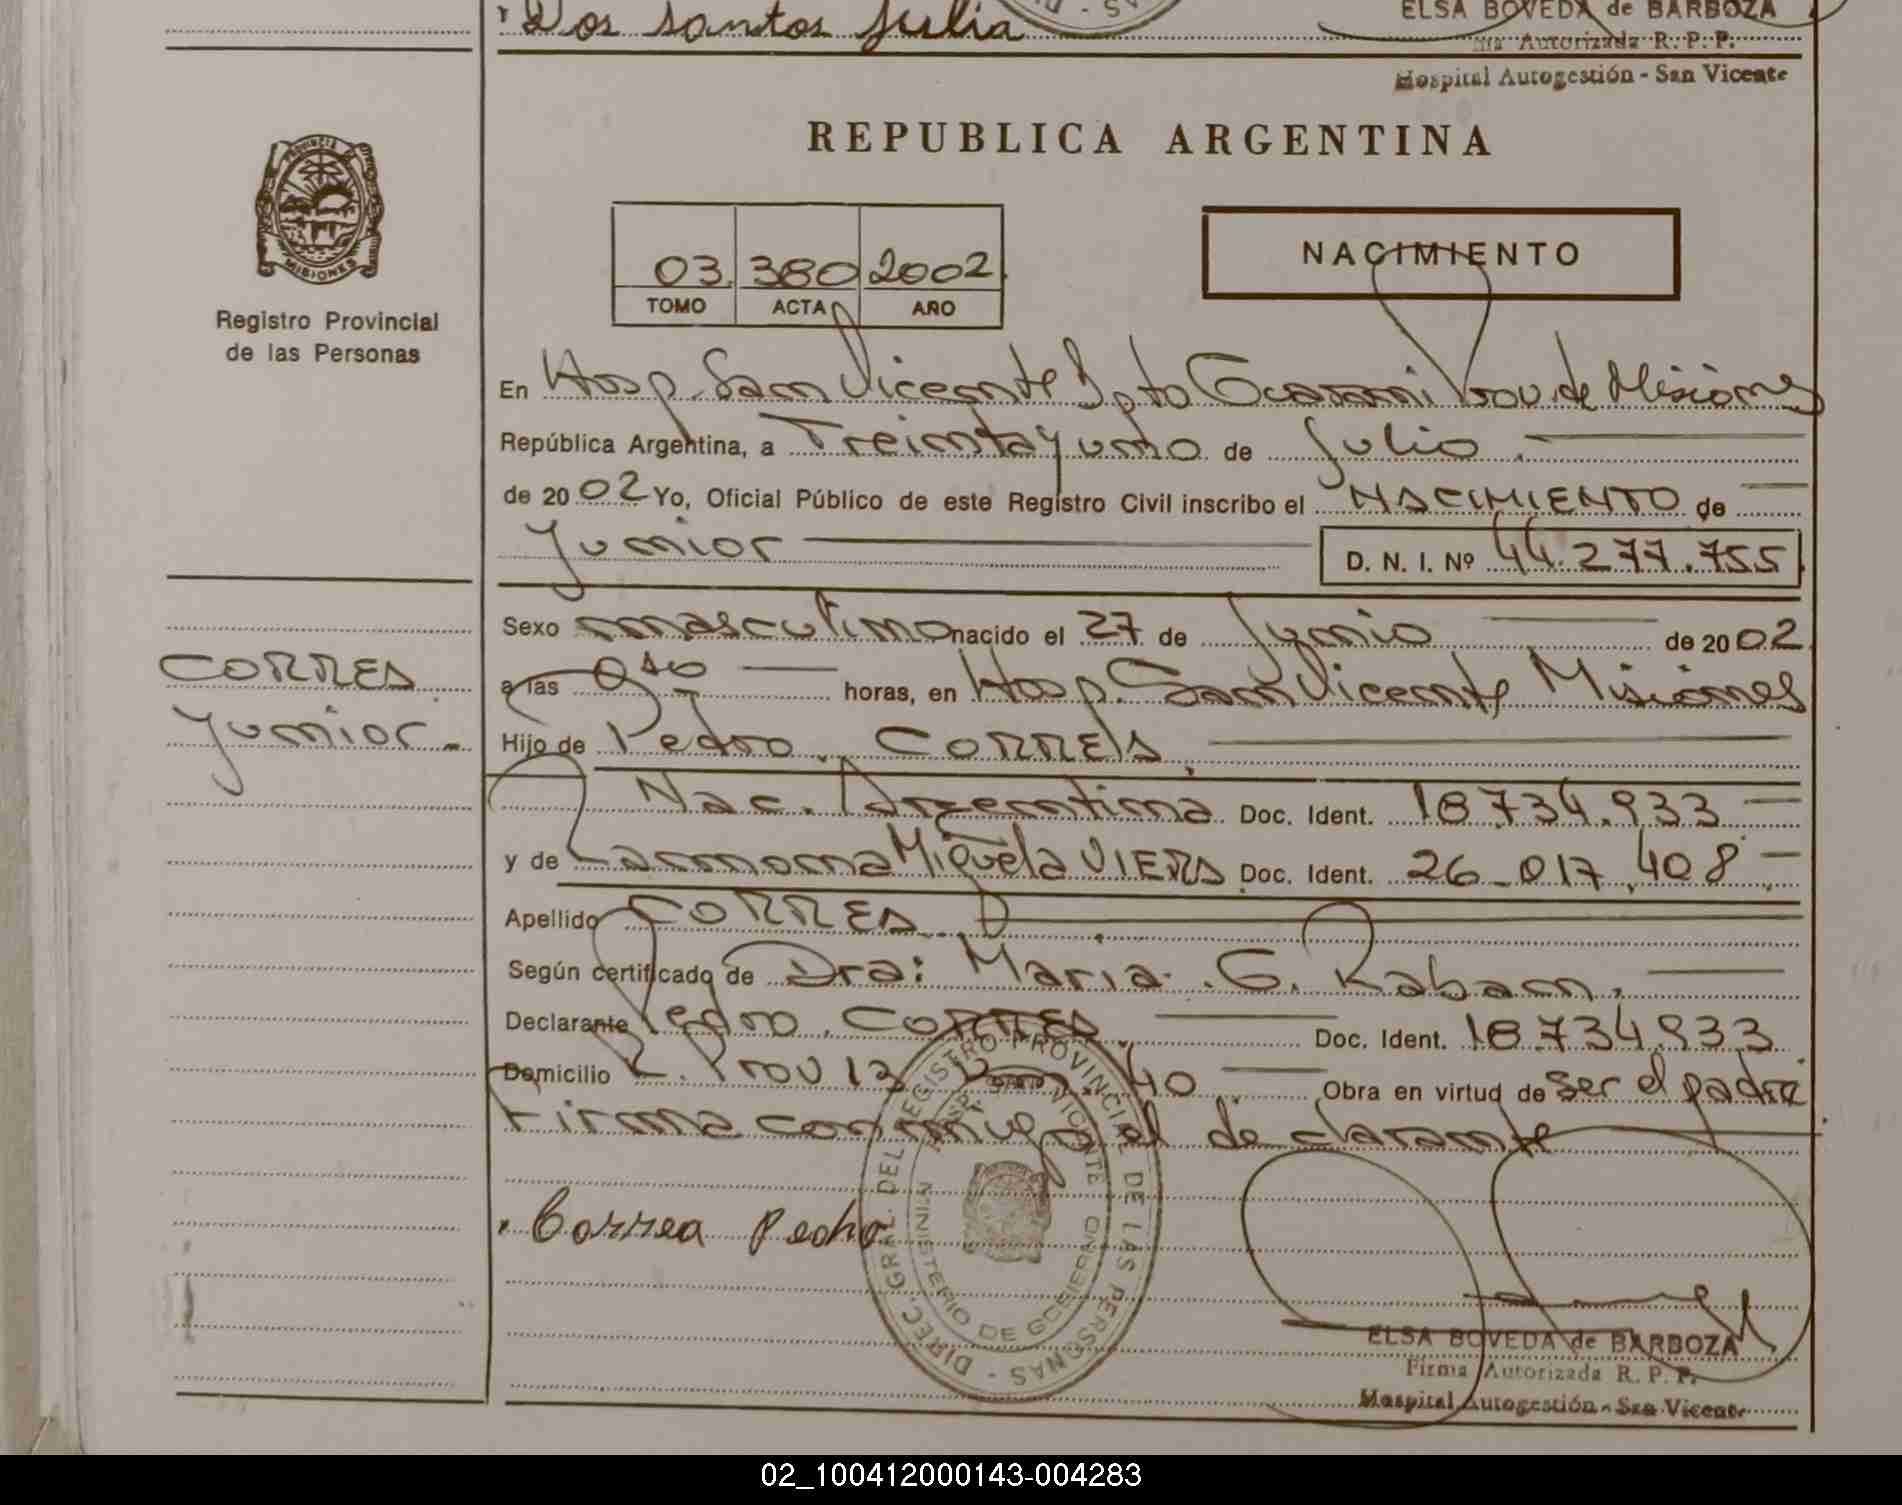 Dos santos Julia
ELSA BOVEDA de BARBOZA
Firma Autorizada R. P. P.
Hospital Autogestión - San Vicente
PROVINCIA
MISIONES
Registro Provincial
de las Personas
REPUBLICA ARGENTINA
03 380 2002
TOMO ACTA AÑO
NACIMIENTO
En Hosp. San Vicente Dpto Guarani Prov. de Misiones
República Argentina, a Treintayuno de Julio
de 2002 Yo, Oficial Público de este Registro Civil inscribo el NACIMIENTO de
Junior D. N. I. Nº 44.277.755
Sexo masculino nacido el 27 de Junio de 2002
CORREA
a las 0,40 horas, en Hosp. San Vicente Misiones
Junior
Hijo de Pedro CORREA
Nac. Argentina Doc. Ident. 18.734.933
y de Ramona Miguela VIERA Doc. Ident. 26.017.408
Apellido CORREA
Según certificado de Dra: Maria G. Raban.
Declarante Pedro CORREA Doc. Ident. 18.734.933
Domicilio R. Prov 13 40 Obra en virtud de ser el padre
Firma conmigo el declarante
Correa Pedro
DIREC. GRAL. DEL REGISTRO PROVINCIAL DE LAS PERSONAS
HOSP. SAN VICENTE
MINISTERIO DE GOBIERNO
ELSA BOVEDA de BARBOZA
Firma Autorizada R. P. P.
Hospital Autogestión - San Vicente
02_100412000143-004283